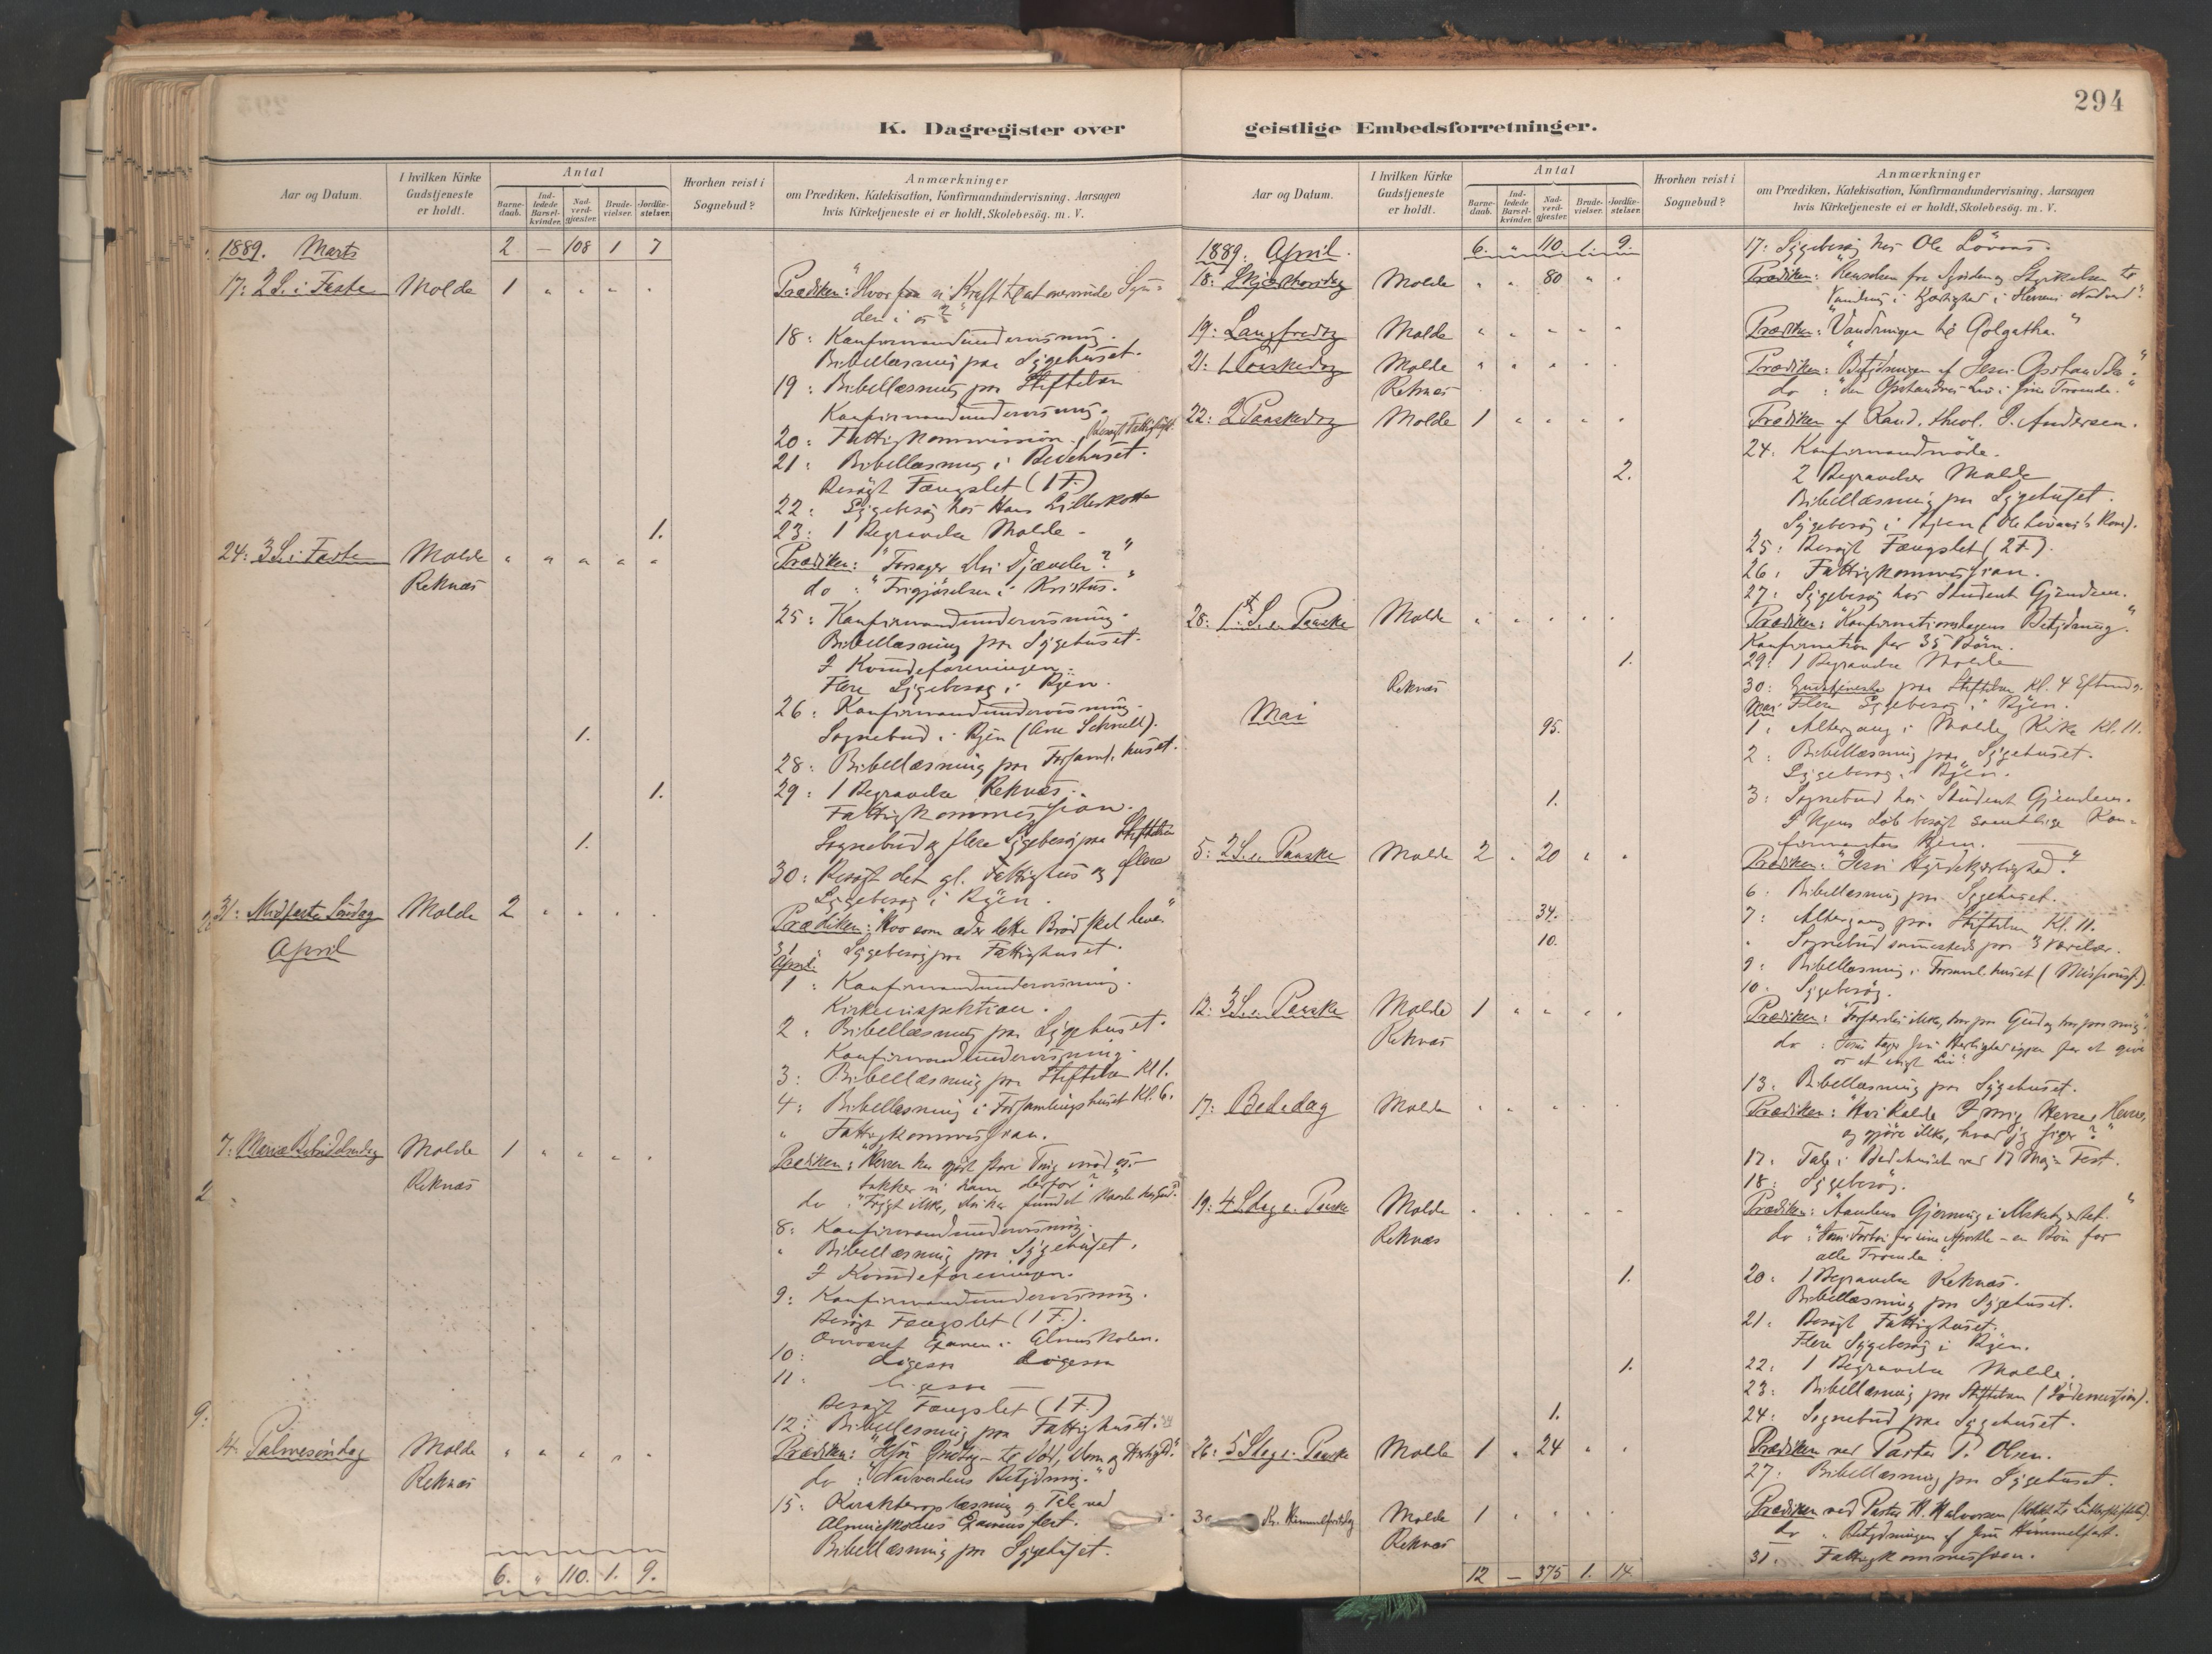 294
K. Dagregister over geistlige Embedsforretninger.
Aar og Datum.
I hvilken Kirke Gudstjeneste er holdt.
Antal
Barnedaab.
Indledede Barselkvinder.
Nadverdgjester.
Brudevielser.
Jordfæstelser.
Hvorhen reist i Sognebud?
Anmærkninger
om Prædiken, Katekisation, Konfirmandundervisning, Aarsagen
hvis Kirketjeneste ei er holdt, Skolebesøg. m. V.
1889. Marts 2 — 108 1 7
17: 2 S. i Faste Molde 1 " " " " Prædiken: "Hvor faa vi Kraft til at overvinde Syn-
den i os?"
18: Konfirmandundervisning.
Bibellæsning paa Sygehuset.
19: Bibellæsning paa Stiftelsen
Konfirmandundervisning.
20: Fattigkommission. Besøgt Fattighuset.
21: Bibellæsning i Bedehuset.
Besøgt Fængslet (1 F.)
22: Sygebesøg hos Hans
1. 23: 1 Begravelse Molde.
24: 3 S. i Faste Molde " " " " " Prædiken: "Forsager du Djævelen?"
Reknæs do : "Frigjørelsen i Kristus."
25: Konfirmandundervisning.
Bibellæsning paa Sygehuset.
I Kvindeforeningen.
Flere Sygebesøg i Byen.
26: Konfirmandundervisning.
1. Sognebud i Byen (Arne Schnell).
28: Bibellæsning paa Forsaml. huset.
1. 29: 1 Begravelse Reknæs.
Fattigkommission.
1. Sognebud og flere Sygebesøg paa Stiftelsen
30: Besøgt det gl. Fattighus og flere
Sygebesøg i Byen.
31: Midfaste Søndag Molde 2 " " " " Prædiken: "Hvo som æder dette Brød skal leve"
31 Sygebesøg paa Fattighuset.
April April:
1: Konfirmandundervisning.
Kirkeinspektion.
2: Bibellæsning paa Sygehuset.
Konfirmandundervisning.
3: Bibellæsning paa Stiftelsen Kl 1.
4: Bibellæsning i Forsamlingshuset Kl. 6.
" Fattigkommission.
7: Mariæ Bebudelsesdag Molde 1 " " " " Prædiken: "Herren har gjort store Ting imod os.—
takker vi ham derfor?"
Reknæs do "Frygt ikke, du har fundet Naade hos Gud."
8: Konfirmandundervisning.
" Bibellæsning paa Sygehuset.
I Kvindeforeningen.
9: Konfirmandundervisning.
Besøgt Fængslet (1 F.).
Overværet Examen i Almueskolen.
10: Ligesaa Ligesaa
11: Ligesaa
Besøgt Fængslet (1 F.)
12: Bibellæsning paa Fattighuset.
14. Palmesøndag Molde " " " " "
Reknæs do : "Nadverdens Betydning."
15: Karakteroplæsning og Tale ved
Almueskolens Examensfest.
Bibellæsning paa Sygehuset.
6. " 110. 1. 9.
1889. April. 6. " 110. 1. 9. 17: Sygebesøg hos Ole Løvaas.
18: Skjærthorsdag Molde " " 80 " " Prædiken: "Renselsen fra Synden og Styrkelsen til
Vandring i Kjærlighed i Herrens Nadverd."
19: Langfredag Molde " " " " " Prædiken: "Vandringen til Golgatha."
21: 1 Paaskedag Molde " " " " " Prædiken: "Betydningen af Jesu Opstandelse."
Reknæs do : "Den Opstandnes Liv i sine Troende."
22: 2 Paaskedag Molde 1 " " " " Prædiken af Kand. theol. P. Andersen.
24: Konfirmandmøde.
2. 2 Begravelser Molde
Bibellæsning paa Sygehuset.
Sygebesøg i Byen (Ole Løvaas's Kone).
25: Besøgt Fængslet (2 F.).
26: Fattigkommission.
27: Sygebesøg hos Student Gjendem.
28: 1ste S. e. Paaske Molde " " " " " Prædiken: "Konfirmationsdagens Betydning."
Konfirmation for 35 Børn.
1. 29: 1 Begravelse Molde
Reknæs 30: Gudstjeneste paa Stiftelsen Kl. 4 Eftmdg.
Mai Mai Flere Sygebesøg i Byen.
95. 1: Altergang i Molde Kirke Kl. 11.
2: Bibellæsning paa Sygehuset.
Sygebesøg i Byen.
1. 3: Sognebud hos Student Gjendem.
I Ugens Løb besøgt samtlige Kon-
firmanters Hjem.
5: 2 S. e. Paaske Molde 2 " 20 " " Prædiken: "Jesu Hyrdekjærlighed."
6: Bibellæsning paa Sygehuset.
34. 7: Altergang paa Stiftelsen Kl. 11.
10. " Sognebud sammesteds paa 3 Værelser.
9: Bibellæsning i Forsaml. huset (Missionsf.)
10: Sygebesøg.
12: 3 S. e. Paaske Molde 1 " " " " Prædiken: "Forfærdes ikke, tro paa Gud og tro paa mig"
Reknæs do : "Jesus tager sin Herlighed igjen for at give
os et evigt Liv."
13: Bibellæsning paa Sygehuset.
17: Bededag Molde " " " " " Prædiken: "Hvi kalde I mig Herre, Herre,
og gjøre ikke, hvad jeg siger?"
17: Tale i Bedehuset ved 17 Mai-Fest.
18: Sygebesøg.
19: 4 S. dag e. Paaske Molde " " " " " Prædiken: "Aandens Gjerning i Menneskehjertet."
Reknæs do : "Jesu Forbøn for sine Apostle – en Bøn for
alle Troende."
1. 20: 1 Begravelse Reknæs.
Bibellæsning paa Sygehuset.
21: Besøgt Fattighuset.
Flere Sygebesøg i Byen.
1. 22: 1 Begravelse Molde.
23: Bibellæsning paa Stiftelsen
1. 24: Sognebud paa Sygehuset.
26: 5 S. dag e. Paaske Molde 1 " 24 " " Prædiken ved Pastor P. Olsen.
27: Bibellæsning paa Sygehuset.
30 Kr. Himmelfartsdag Molde 1 " " " " Prædiken ved Pastor H. Halvorsen
Reknæs do " Betydningen af Jesu Himmelfart.
31. Fattigkommission.
12 — 375 1. 14.